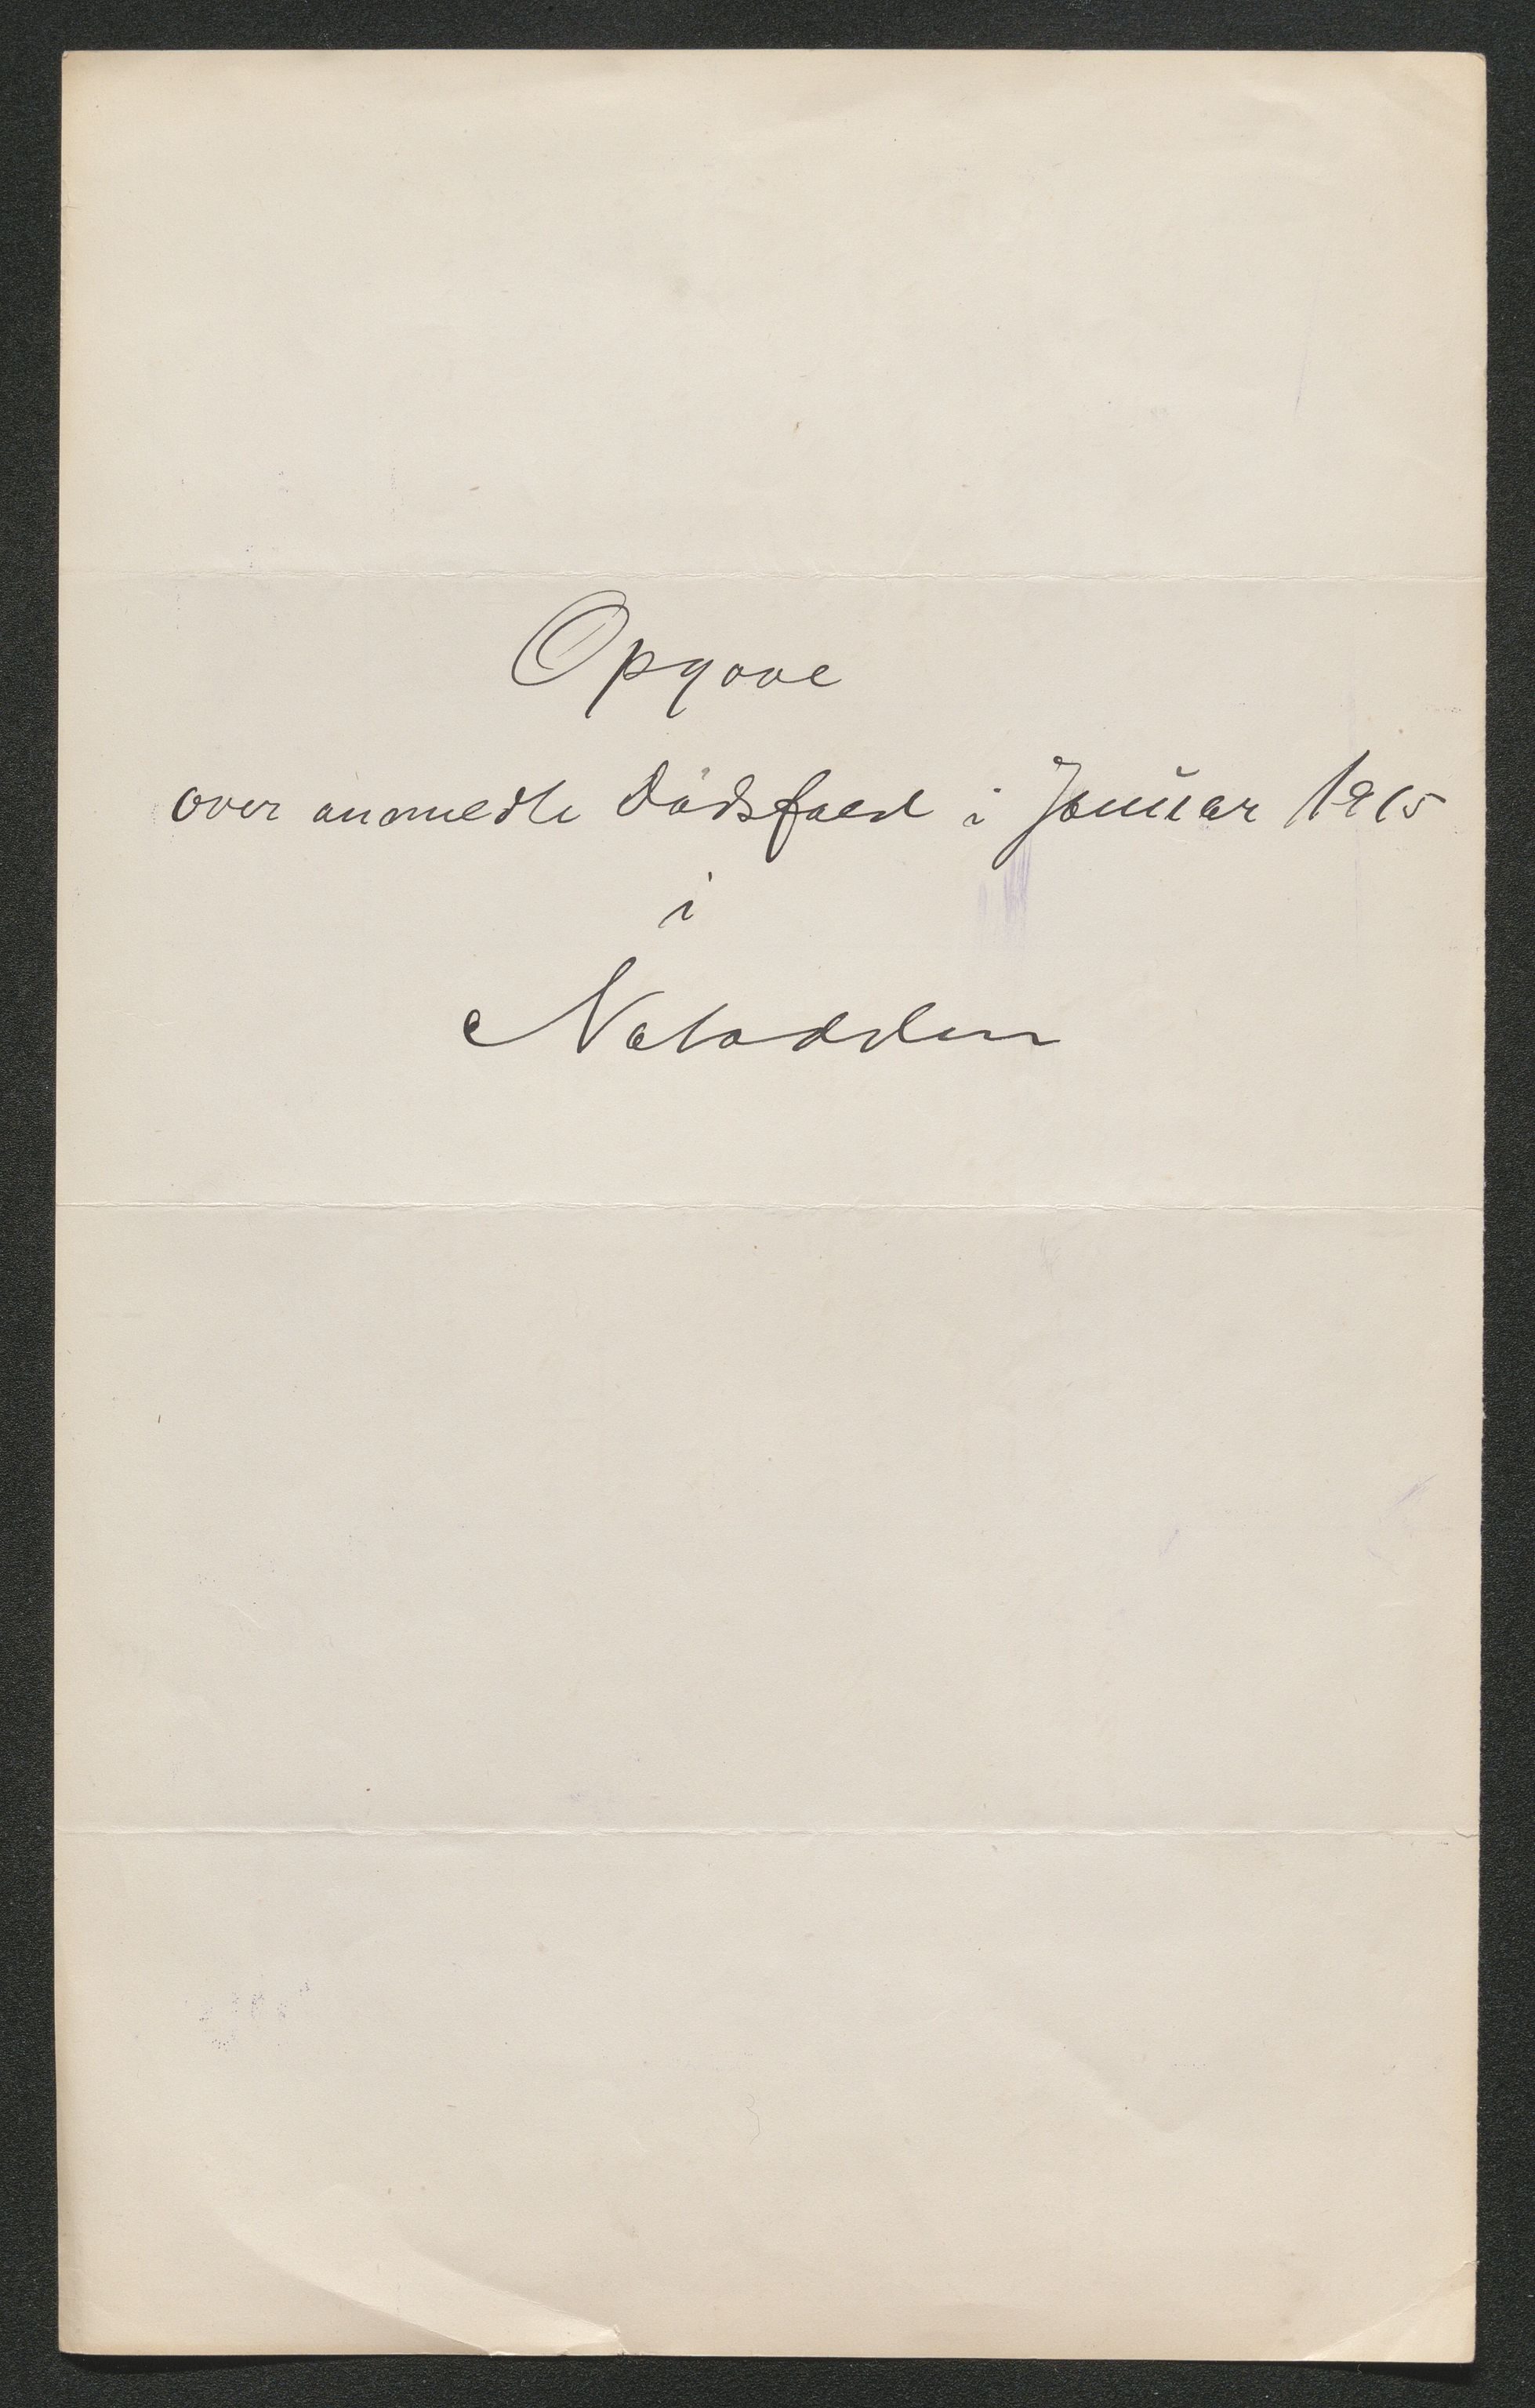 Opgave
over anmeldte Dødsfald i Januar 1915
i
Notodden